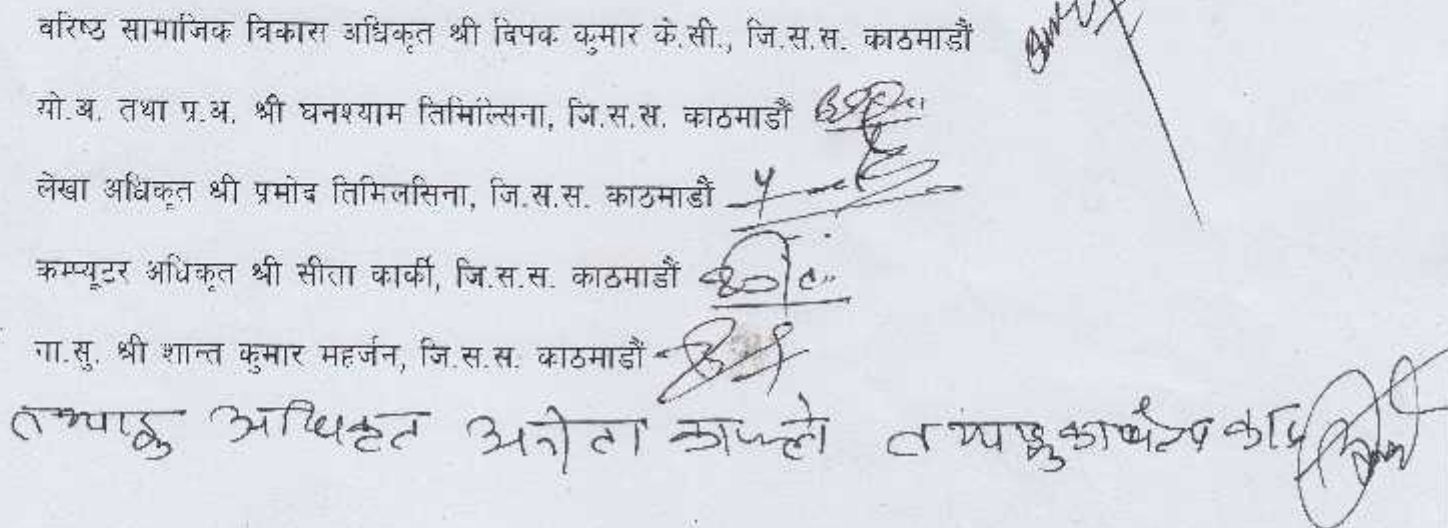 वरिष्ठ सामाजिक विकास अधिकृत श्री दिपक कुमार के.सी., जि.स.स. काठमाडौं
यो.अ. तथा प्र.अ. श्री घनश्याम तिमिल्सिना, जि.स.स. काठमाडौं
लेखा अधिकृत श्री प्रमोद तिमिलसिना, जि.स.स. काठमाडौं
कम्प्यूटर अधिकृत श्री सीता कार्की, जि.स.स. काठमाडौं
ना.सु. श्री शान्त कुमार महर्जन, जि.स.स. काठमाडौं
तथ्याङ्क अधिकृत अनिता काफ्ले तथ्याङ्क कार्यालय